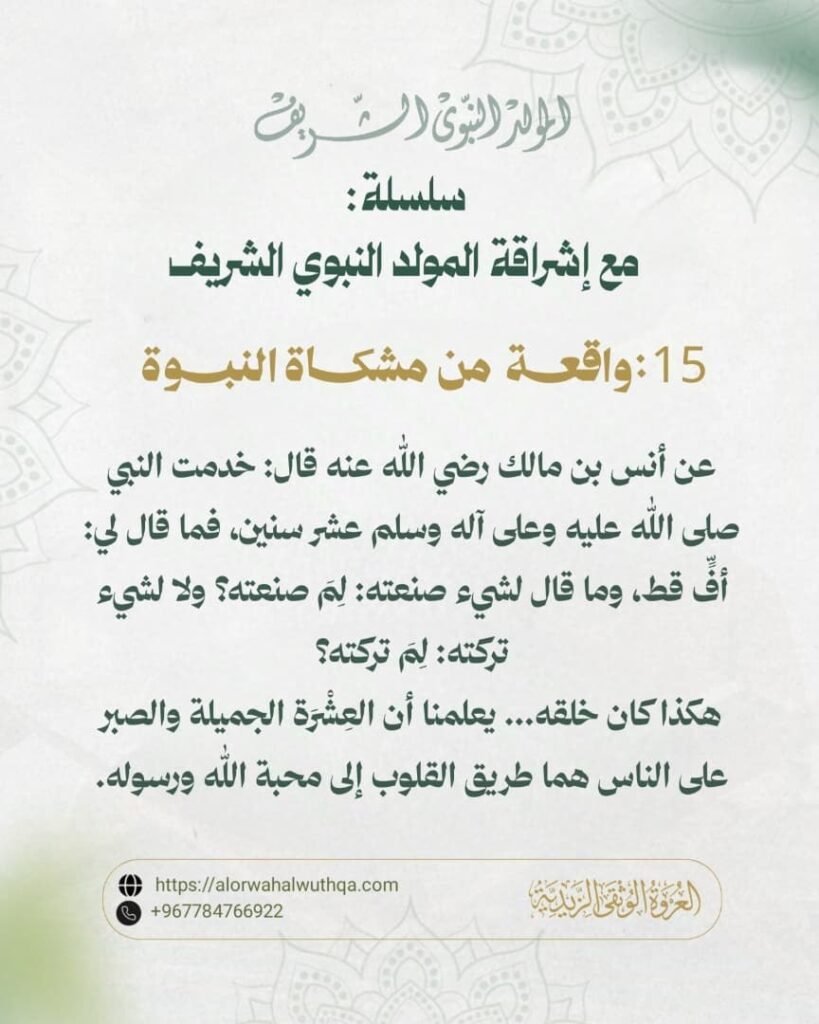 المولد النبوي الشريف
سلسلة:
مع إشراقة المولد النبوي الشريف
15:واقعة من مشكاة النبوة
عن أنس بن مالك رضي الله عنه قال: خدمت النبي
صلى الله عليه وعلى آله وسلم عشر سنين، فما قال لي:
أفٍّ قط، وما قال لشيء صنعته: لِمَ صنعته؟ ولا لشيء
تركته: لِمَ تركته؟
هكذا كان خلقه... يعلمنا أن العِشْرَة الجميلة والصبر
على الناس هما طريق القلوب إلى محبة الله ورسوله.
https://alorwahalwuthqa.com
+967784766922
العُرْوَةُ الوُثْقَى الزَّيْدِيَّة